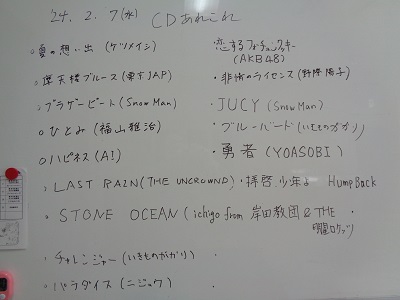 24. 2. 7(水) CDあれこれ
・夏の想い出 (ケツメイシ)
・恋するフォーチュンクッキー
(AKB48)
・摩天楼ブルース(東京JAP)
・非情のライセンス(野際陽子)
・ブラザービート(Snow Man)
・JUCY (Snow Man)
○ひとみ (福山雅治)
・ブルーバード(いきものがかり)
○ハピネス(AI)
・勇者 (YOASOBI)
・LAST RAIN(THE UNCROWND)
・拝啓、少年よ Hump Back
・STONE OCEAN (ichigo from 岸田教団&THE
明星ロケッツ
・チャレンジャー(いきものがかり)
・パラダイス(ニジュウ)